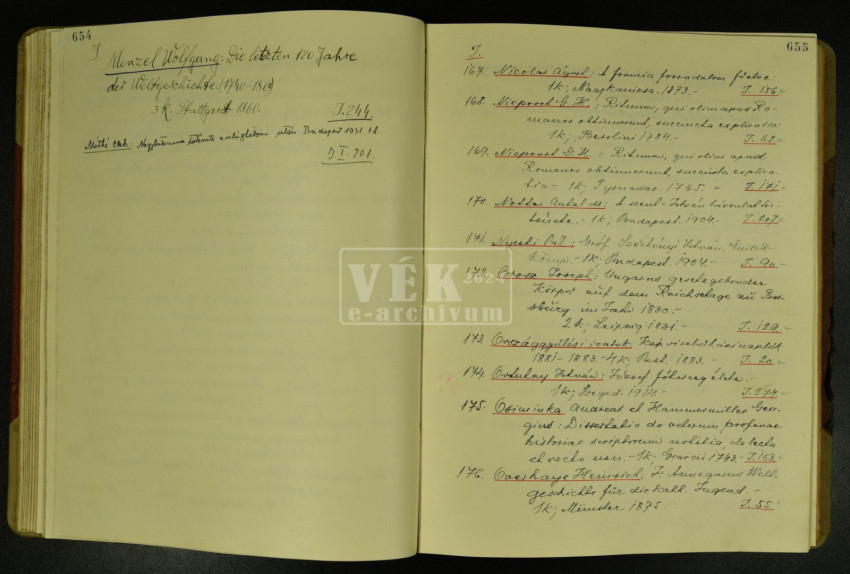 654
I
Menzel Wolfgang: Die letzten 120 Jahre
der Weltgeschichte (1740-1860)
3 k. Stuttgart 1860.
I.244.
utan Budapest 1931. 1 k.
I. 201.
655
I.
167. Nicolas Ágost: A francia forradalom
1k; Nagykanizsa. 1873.- I. 156.-
168. Nieport G. H.: Rituum, qui olim apud Ro-
manos obtinuerunt, succincta explicatio
1k; Berolini 1784.- I. 68.-
169. Nieport G. H.: Rituum, qui olim apud
Romanos obtinuerunt, succincta explica-
tio.- 1k; Tyrnaviae. 1765.- I. 171.-
170. Notter Antal dr: A szent-István társulat tör-
ténete.- 1k; Budapest. 1904.- I. 207.-
171. Pál: Gróf Széchényi István. Emlék-
könyv.- 1k; Budapest. 1904.- I. 90.-
172. Orosz Joseph: Ungarns gesetzgebender
Körper auf dem Reichstage zu Pres-
sburg im Jahr 1830.-
2k; Leipzig 1831.- I. 129.-
173. Országgyűlési iratok. Képviselőházi napló
1881-1883.-4k; Pest. 1883.- I. 2.-
174. Ortutay István: József főherceg élete.-
1k; Szeged. 1914.- I. 274.-
175. Osiminka Andreas et Hammermiller Geor-
gius: Dissertatio de veterum profanae
historiae scriptorum notitia, delectu
et recto usu.-1k. Graecii 1743.-I.163.-
176. Overhage Heinrich: J. Annegarns Welt-
geschichte für die kath. Jugend.-
1k; Münster 1875. I. 55.-
VÉK
2624
e-archivum